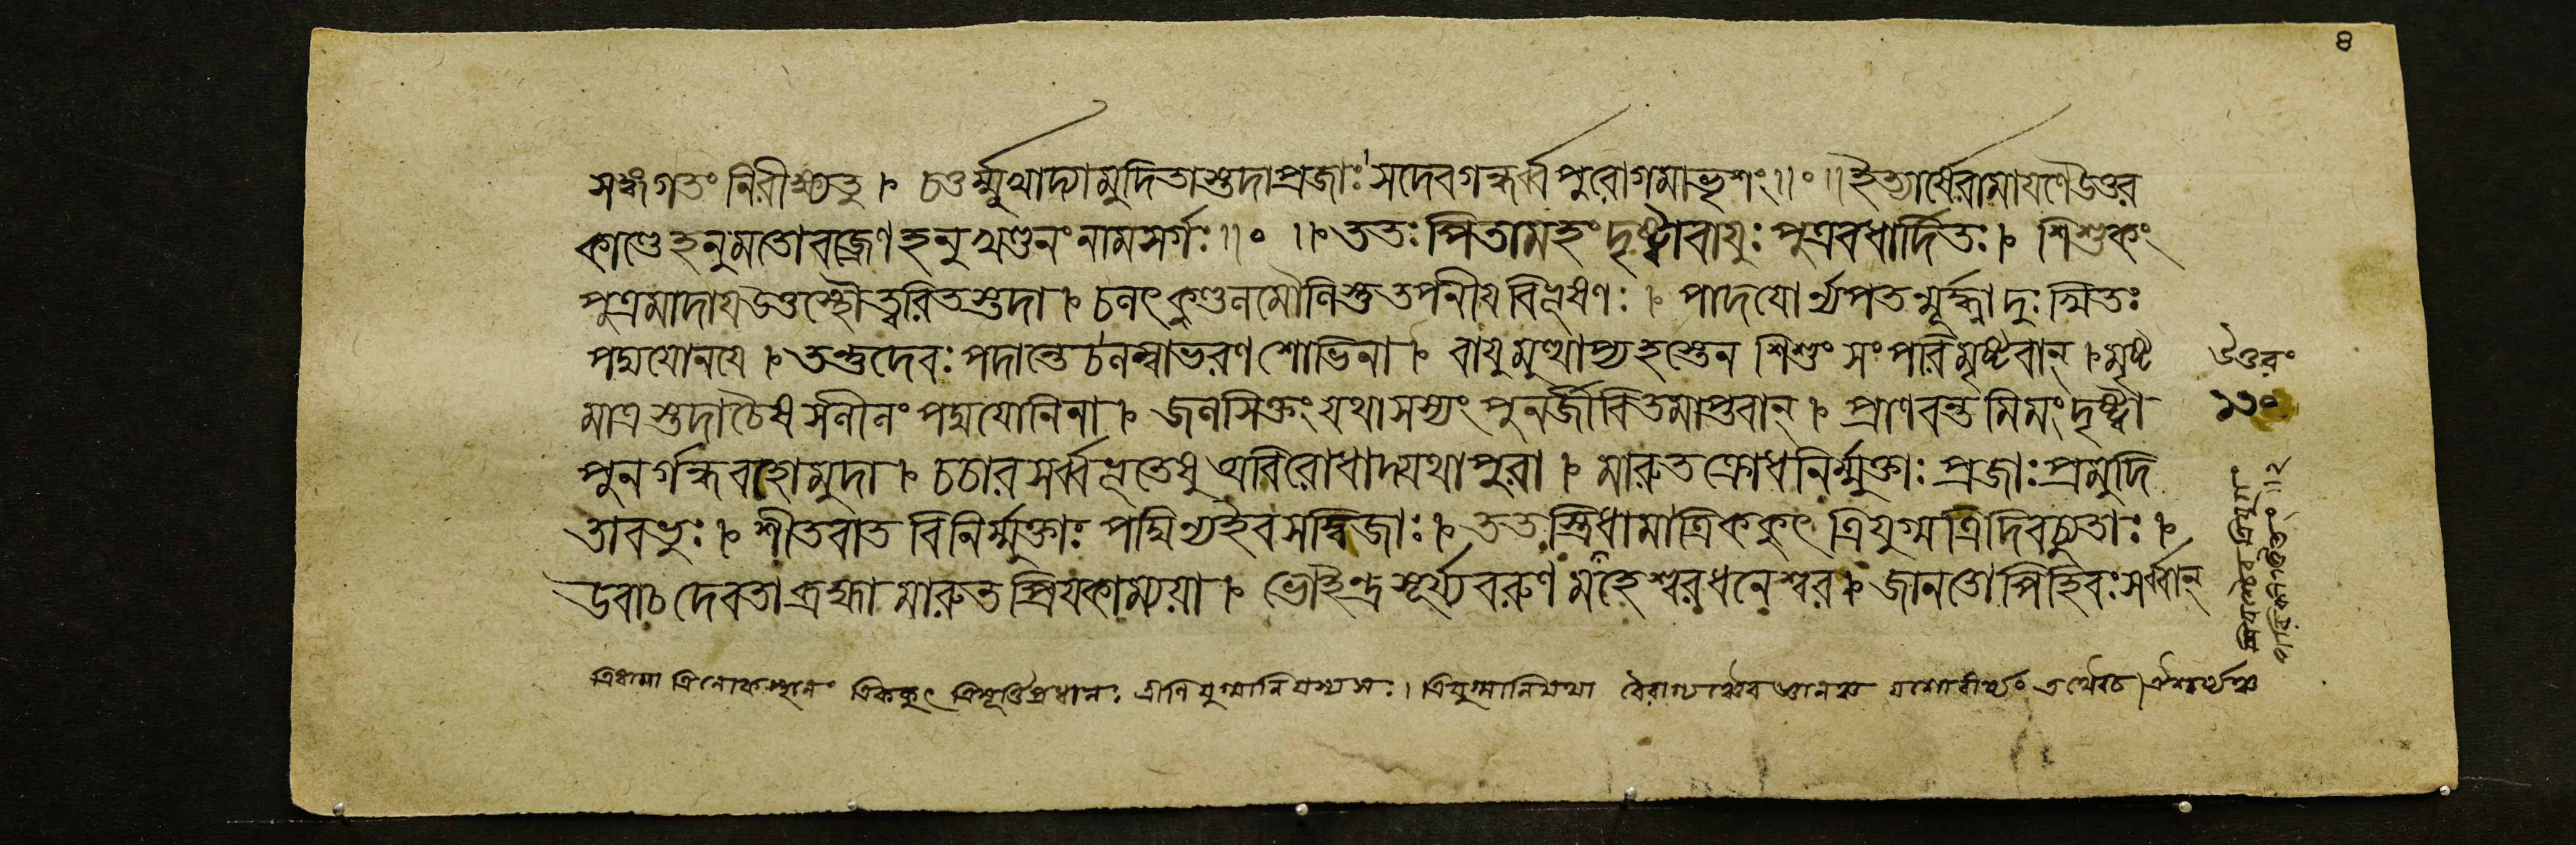 ৪
সঙ্কংগতং নিরীক্ষ্যতু । চতুর্ম্মুখাদ্যামুদিতাস্তদাপ্রজাঃ সদেবগন্ধর্ব্বপুরোগমাভৃশং॥০॥ইত্যার্ষেরামায়ণেউত্তর
কাণ্ডেহনুমতোবজ্রেণহনুখণ্ডনংনামসর্গঃ॥০॥ততঃপিতামহংদৃষ্ট্বাবায়ুঃপুত্রবধার্দিতঃ। শিশুকং
পুত্রমাদায়উত্তস্থৌত্বরিতস্তদা । চলৎকুণ্ডলমৌলিস্তুতপনীয়বিভূষণঃ । পাদয়োর্ন্যপতন্মূর্দ্ধ্নাদুঃখিতঃ
পদ্মযোনয়ে । তন্তুদেবঃপদান্তেচলম্বাভরণশোভিনা । বায়ুমুত্থাপ্যহস্তেন শিশুং সংপরিমৃষ্টবান্ । মৃষ্ট
মাত্রস্তদাচৈষসলীলংপদ্মযোনিনা । জলসিক্তংযথাসস্যংপুনর্জীবিতমাপ্তবান্ । প্রাণবন্তমিমংদৃষ্ট্বা
পুনর্গন্ধবহোমুদা । চচারসর্ব্বভূতেষুঅবিরোধাদ্যথাপুরা । মারুতক্রোধনির্ম্মুক্তাঃ প্রজাঃপ্রমুদি
তাবভুঃ । শীতবাতবিনির্ম্মুক্তাঃ পদ্মিন্যইবসদ্বিজাঃ । ততস্ত্রিধামাত্রিককুৎ ত্রিযুগ্মত্রিদিবচ্যুতাঃ ।
উবাচ দেবতাব্রহ্মা মারুতপ্রিয়কাম্যয়া । ভোইন্দ্রসূর্য্যবরুণমহেশ্বরধনেশ্বর । জানতোপিহিবঃসর্ব্বান্
উত্তরং
১১০
ত্রিধামা ত্রিলোকস্থানং ত্রিককুৎ ত্রিমূর্ত্তিপ্রধানঃ ত্রীণিযুগ্মানিযস্যসঃ। ত্রিযুগ্মানিযথা বৈরাগ্য যশোবীর্য্যং ঐশ্বর্য্যঞ্চ